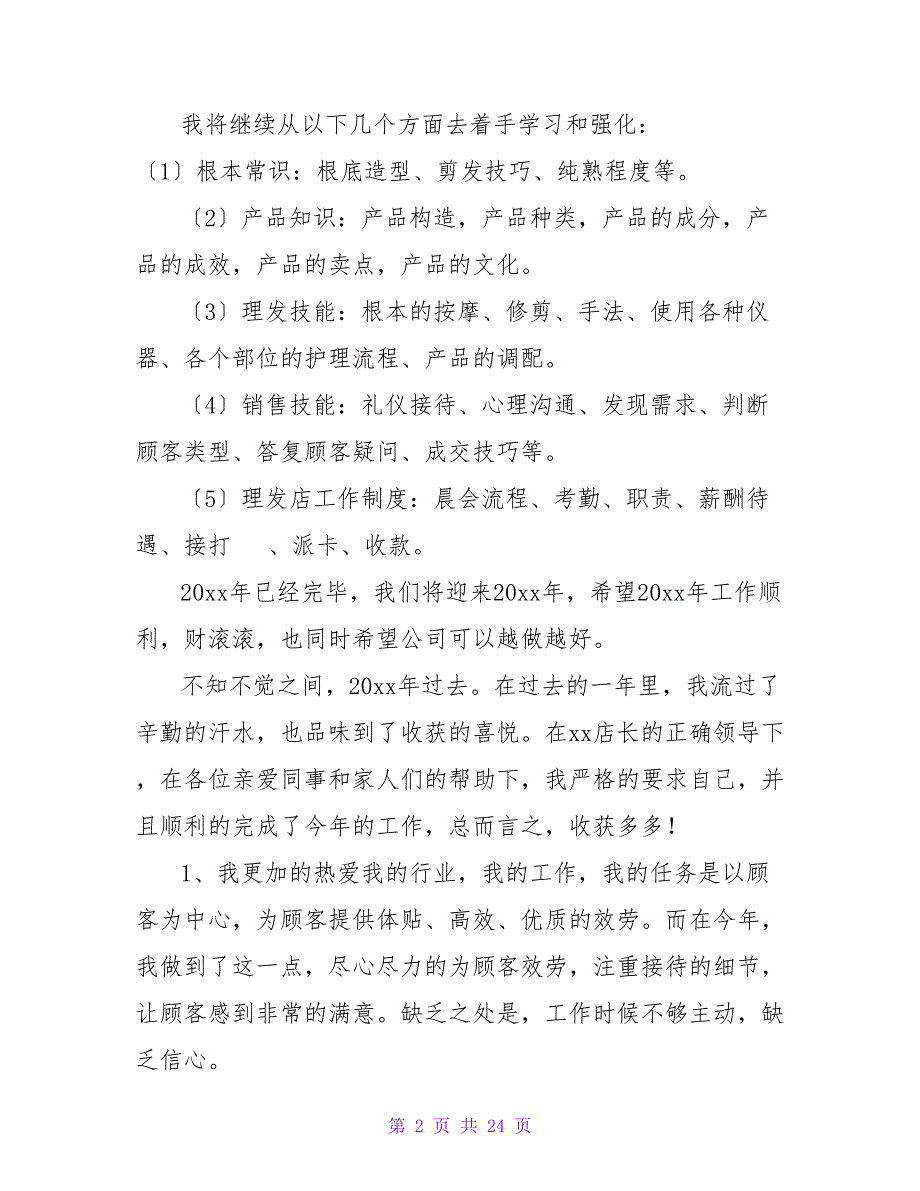 我将继续从以下几个方面去着手学习和强化：
〔1〕根本常识：根底造型、剪发技巧、纯熟程度等。
〔2〕产品知识：产品构造，产品种类，产品的成分，产
品的成效，产品的卖点，产品的文化。
〔3〕理发技能：根本的按摩、修剪、手法、使用各种仪
器、各个部位的护理流程、产品的调配。
〔4〕销售技能：礼仪接待、心理沟通、发现需求、判断
顾客类型、答复顾客疑问、成交技巧等。
〔5〕理发店工作制度：晨会流程、考勤、职责、薪酬待
遇、接打 、派卡、收款。
20xx年已经完毕，我们将迎来20xx年，希望20xx年工作顺
利，财滚滚，也同时希望公司可以越做越好。
不知不觉之间，20xx年过去。在过去的一年里，我流过了
辛勤的汗水，也品味到了收获的喜悦。在xx店长的正确领导下
，在各位亲爱同事和家人们的帮助下，我严格的要求自己，并
且顺利的完成了今年的工作，总而言之，收获多多！
1、我更加的热爱我的行业，我的工作，我的任务是以顾
客为中心，为顾客提供体贴、高效、优质的效劳。而在今年，
我做到了这一点，尽心尽力的为顾客效劳，注重接待的细节，
让顾客感到非常的满意。缺乏之处是，工作时候不够主动，缺
乏信心。
第 2 页 共 24 页